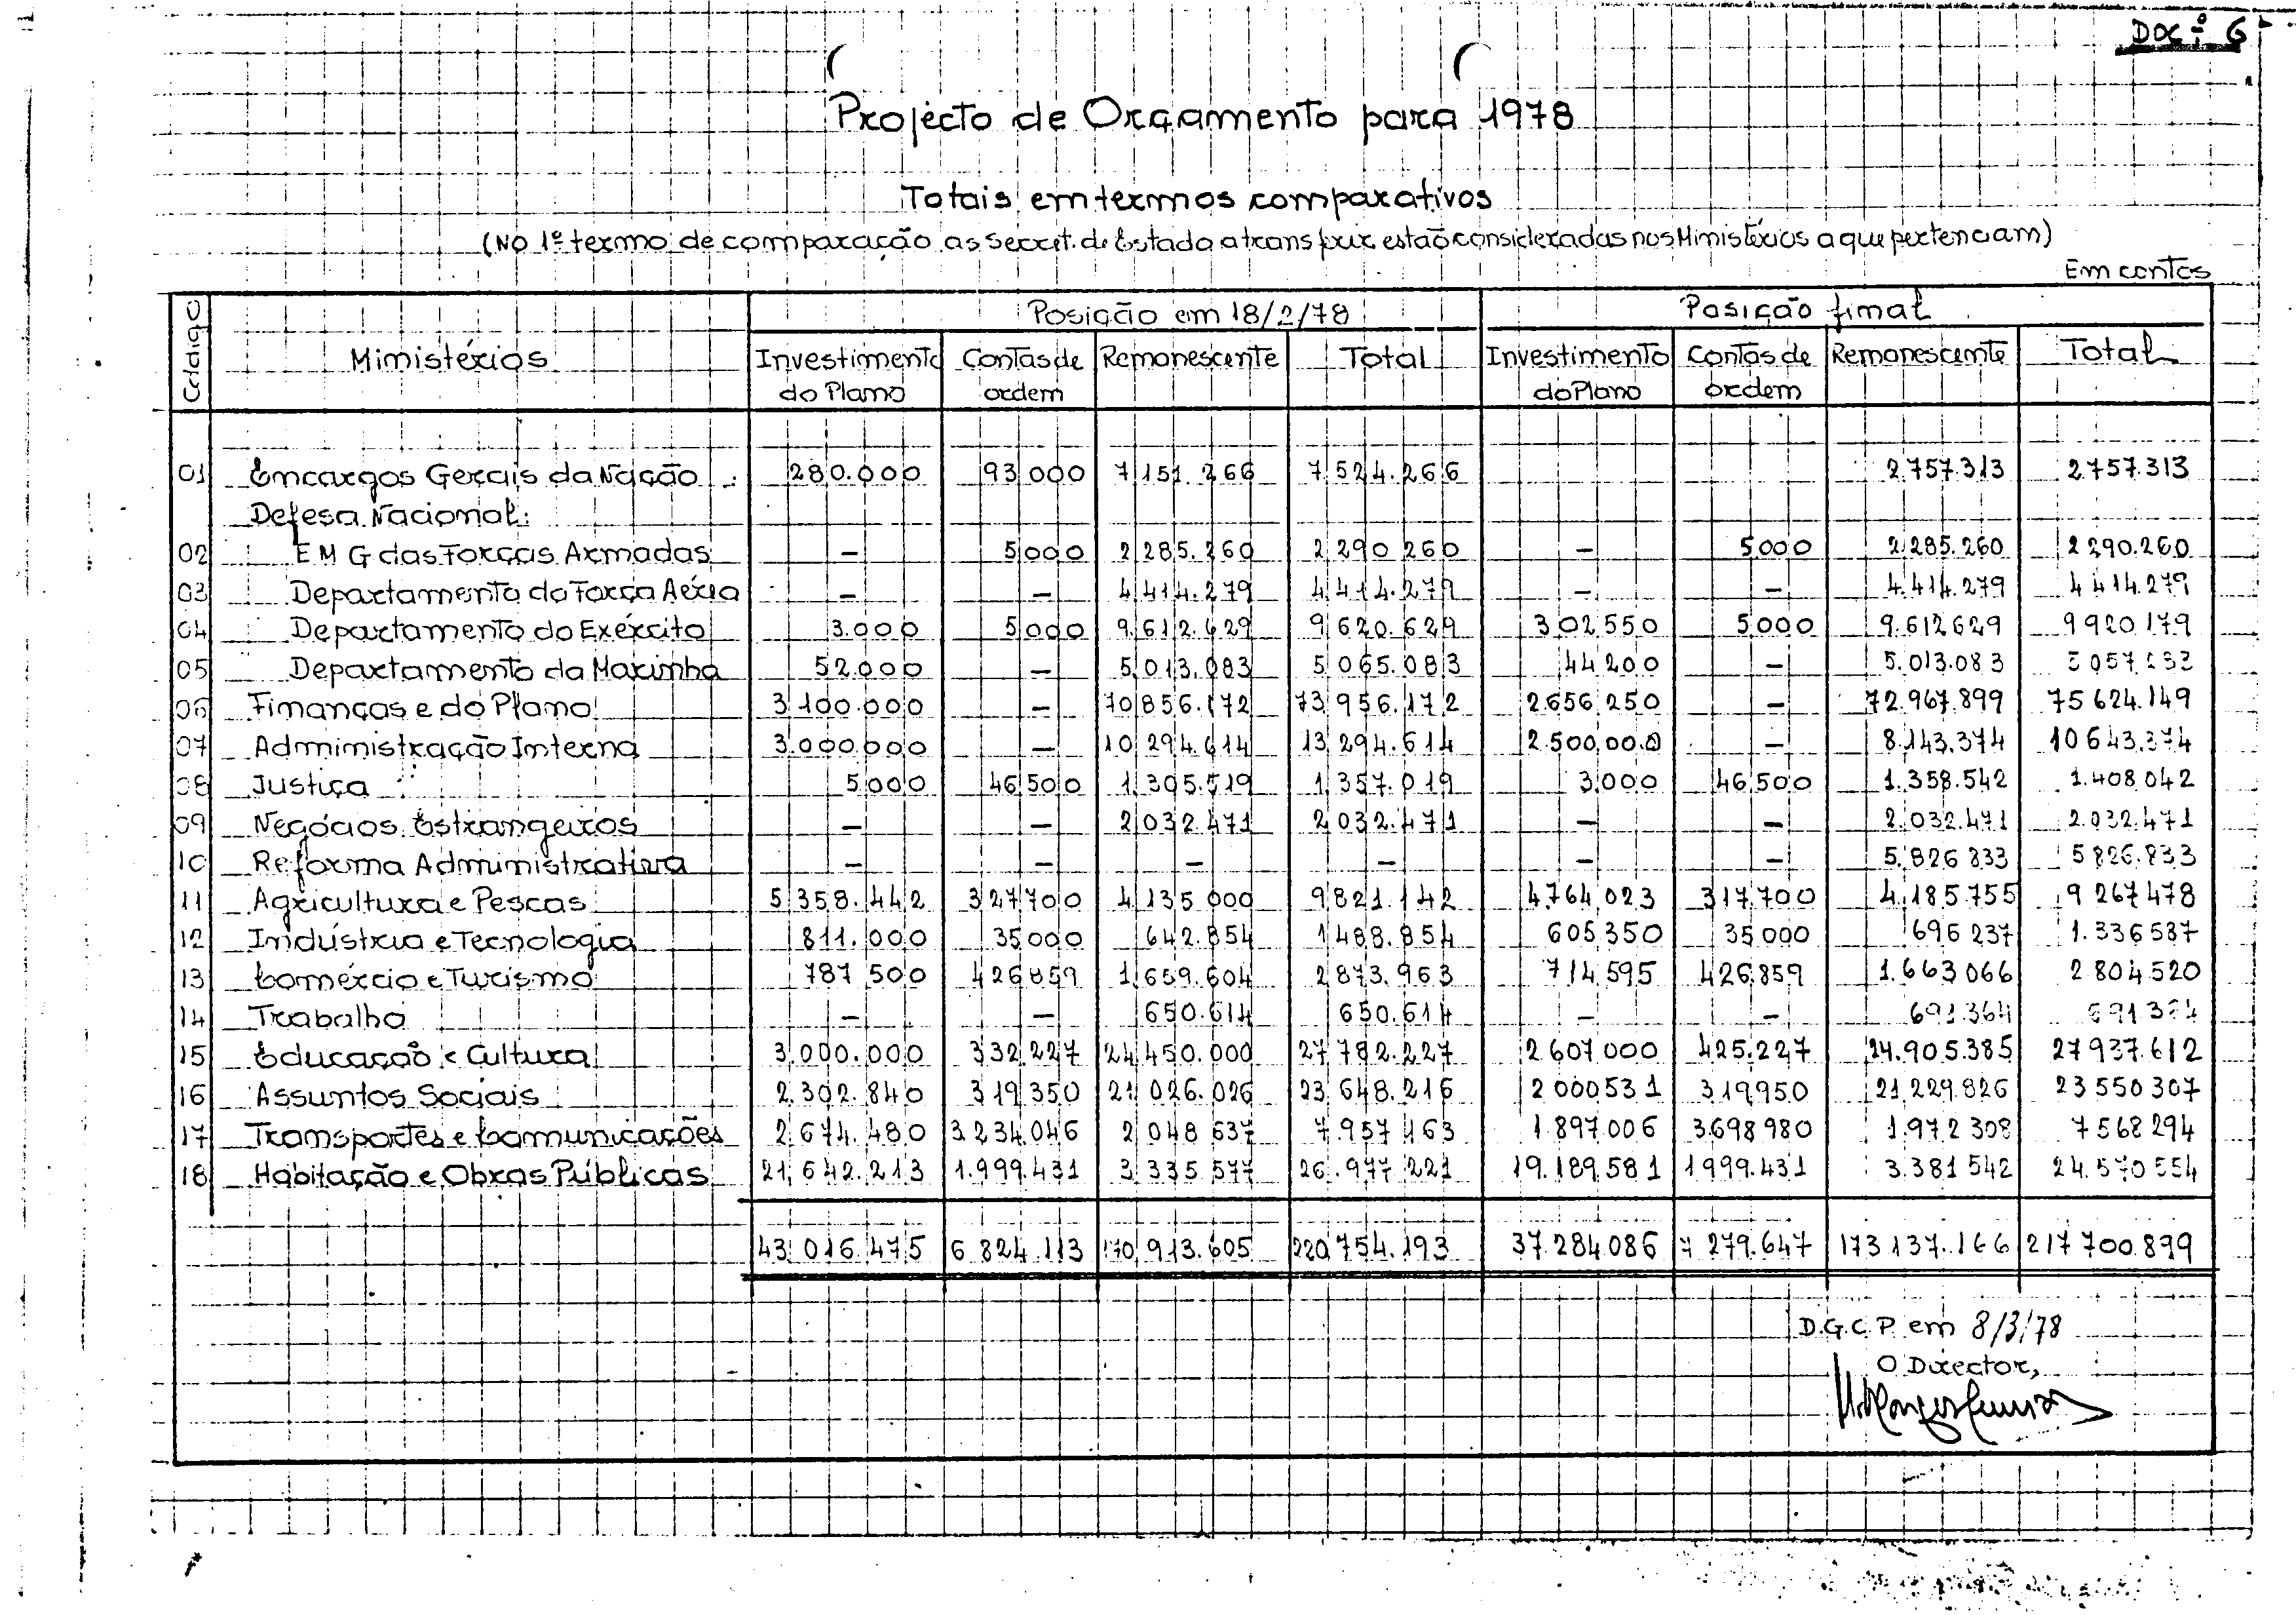 Doc: 6
Projecto de Orçamento para 1978
Totais em termos comparativos
(No 1º termo de comparação as Secret. de Estado a transferir estão consideradas nos Ministérios a que pertenciam)
Em contos
Código Ministérios Posição em 18/2/78 Posição final
Investimento do Plano Contas de ordem Remanescente Total Investimento do Plano Contas de ordem Remanescente Total
01 Encargos Gerais da Nação : 280.000 93 000 7 151. 266 7 524.266 2.757.313 2757.313
Defesa Nacional:
02 E M G das Forças Armadas — 5 000 2 285.260 2 290 260 — 5000 2.285.260 2 290.260
03 Departamento da Força Aérea — — 4 414.279 4 414.279 — — 4.414.279 4 414.279
04 Departamento do Exército 3.000 5 000 9.612.629 9 620.629 302550 5.000 9.612629 9920 179
05 Departamento da Marinha 52.000 — 5 013.083 5 065.083 44 200 — 5.013.083
06 Finanças e do Plano 3 100.000 — 70 856.172 73 956.172 2.656 250 — 72.967.899 75624.149
07 Administração Interna 3.000.000 — 10 294.614 13 294.614 2.500.000 — 8.143.374 10643.374
08 Justiça 5 000 46 500 1.305.519 1 357.019 3.000 46,500 1.358.542 1.408 042
09 Negócios Estrangeiros — — 2 032 471 2 032.471 — — 2.032.471 2.032.471
10 Reforma Administrativa — — — — — — 5.826 833 5826.833
11 Agricultura e Pescas 5 358.442 327700 4 135 000 9 821.142 4.764 023 317.700 4.185 755 9 267 478
12 Indústria e Tecnologia 811.000 35000 642.854 1 488.854 605350 35000 696 237 1.336587
13 Comércio e Turismo 787 500 426859 1.659.604 2 873.963 714595 426.859 1.663 066 2 804520
14 Trabalho — — 650.614 650.614 — — 691.364
15 Educação e Cultura 3.000.000 332 227 24 450.000 27 782.227 2 607 000 425.227 24.905.385 27937.612
16 Assuntos Sociais 2.302.840 319 350 21 026.026 23 648.216 2 000531 319950 21 229.826 23550307
17 Transportes e Comunicações 2 674.480 3 234 046 2 048 637 7.957 163 1 897006 3.698 980 1.972 308 7568294
18 Habitação e Obras Públicas 21 642.213 1.999.431 3 335 577 26.977 221 19.189.581 1 999.431 3.381 542 24.570554
43 016.475 6 824.113 170 913.605 220 754.193 37 284086 7 279.647 173 137.166 217 700.899
D.G.C.P. em 8/3/78
O Director,